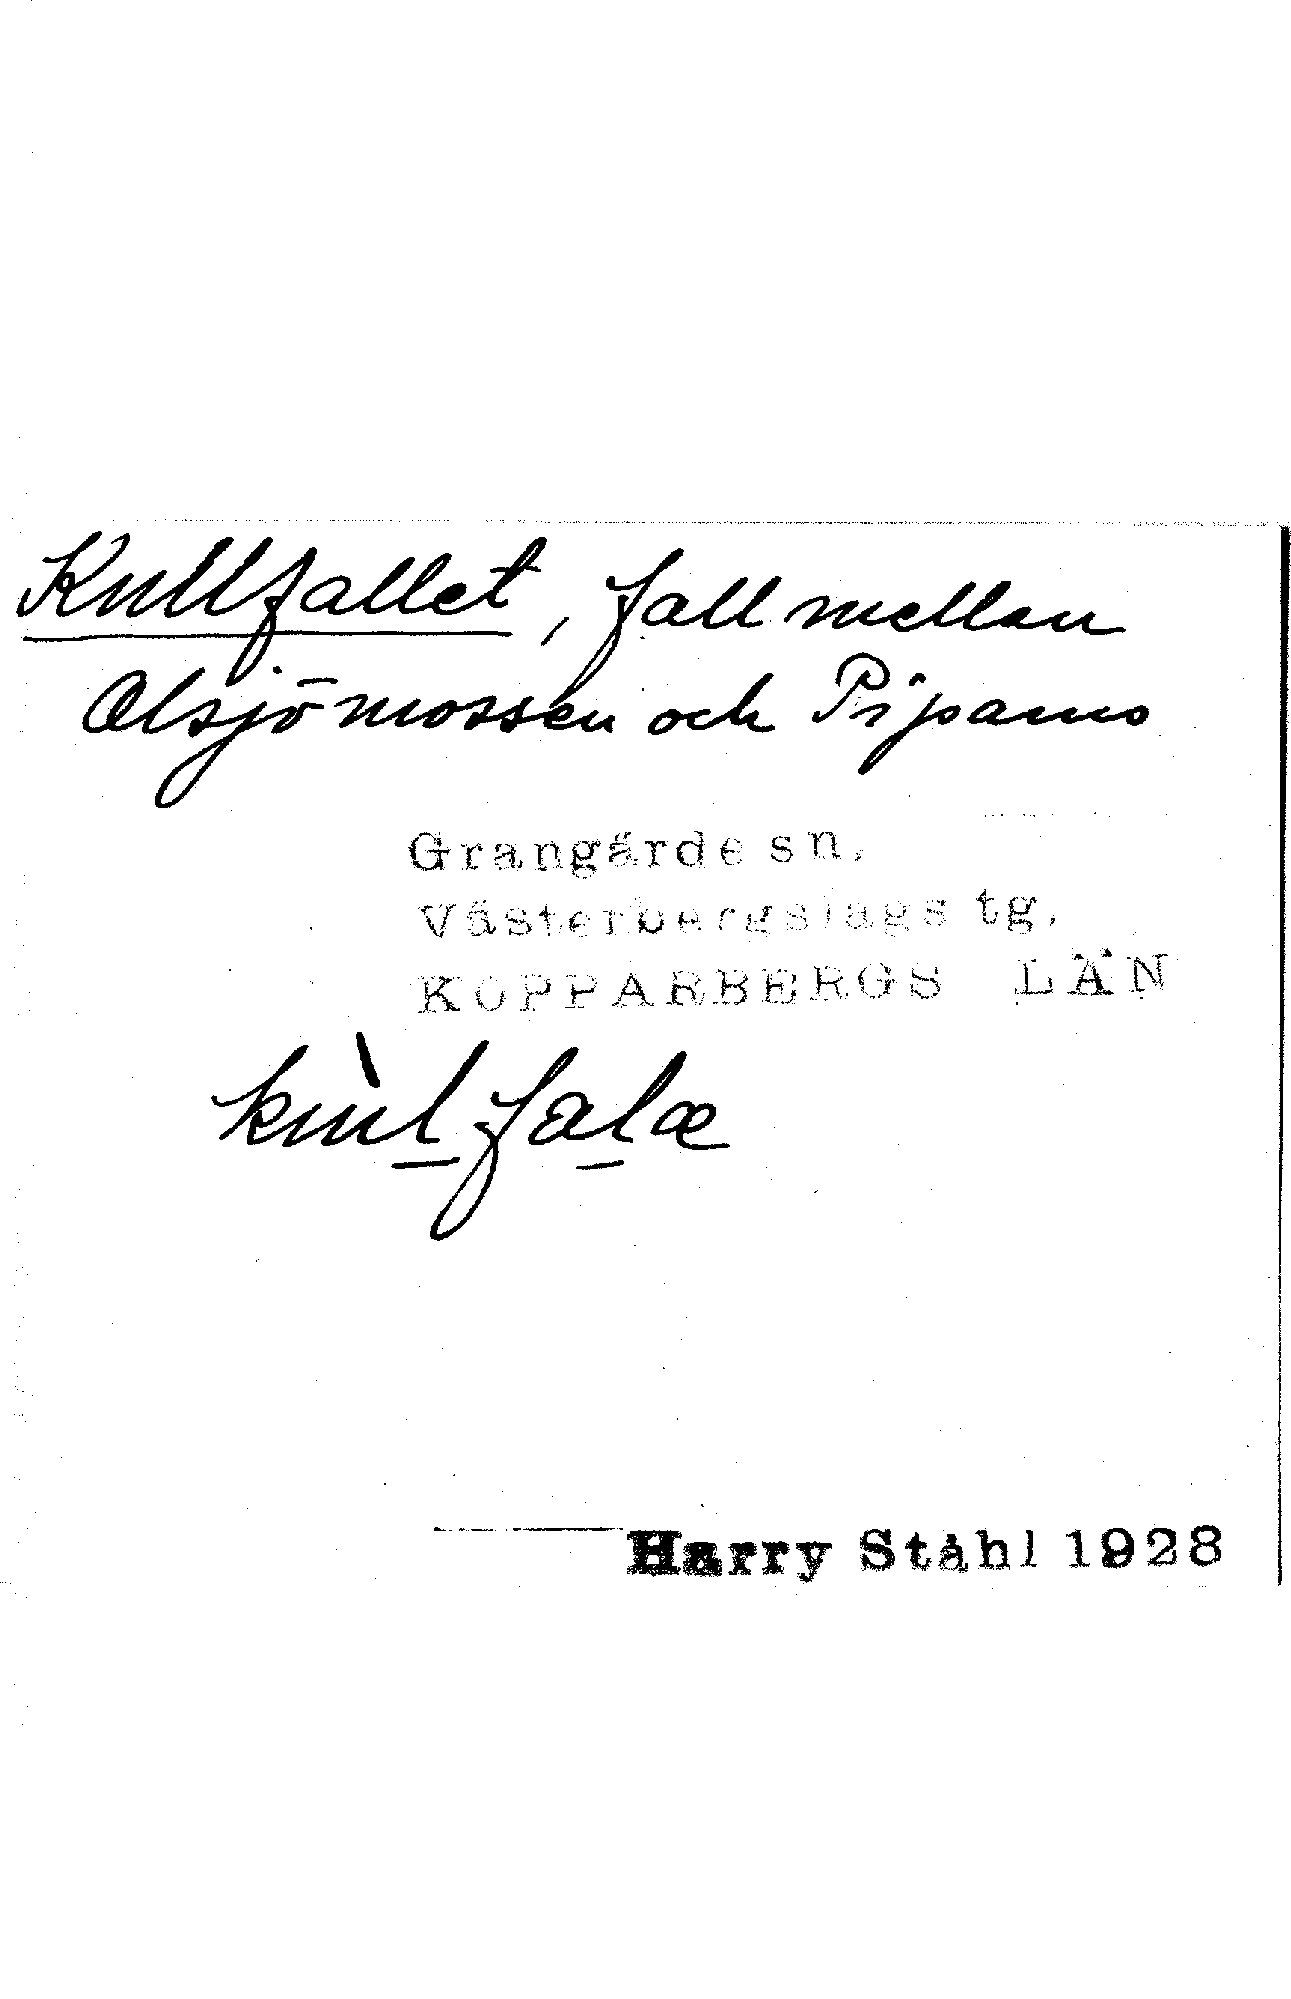 Kullfallet, fall mellan
Olsjömossen och Pipamo
Grangärde sn.
Västerbergslags tg.
KOPPARBERGS LÄN
kùlfalæ
Harry Ståhl 1928